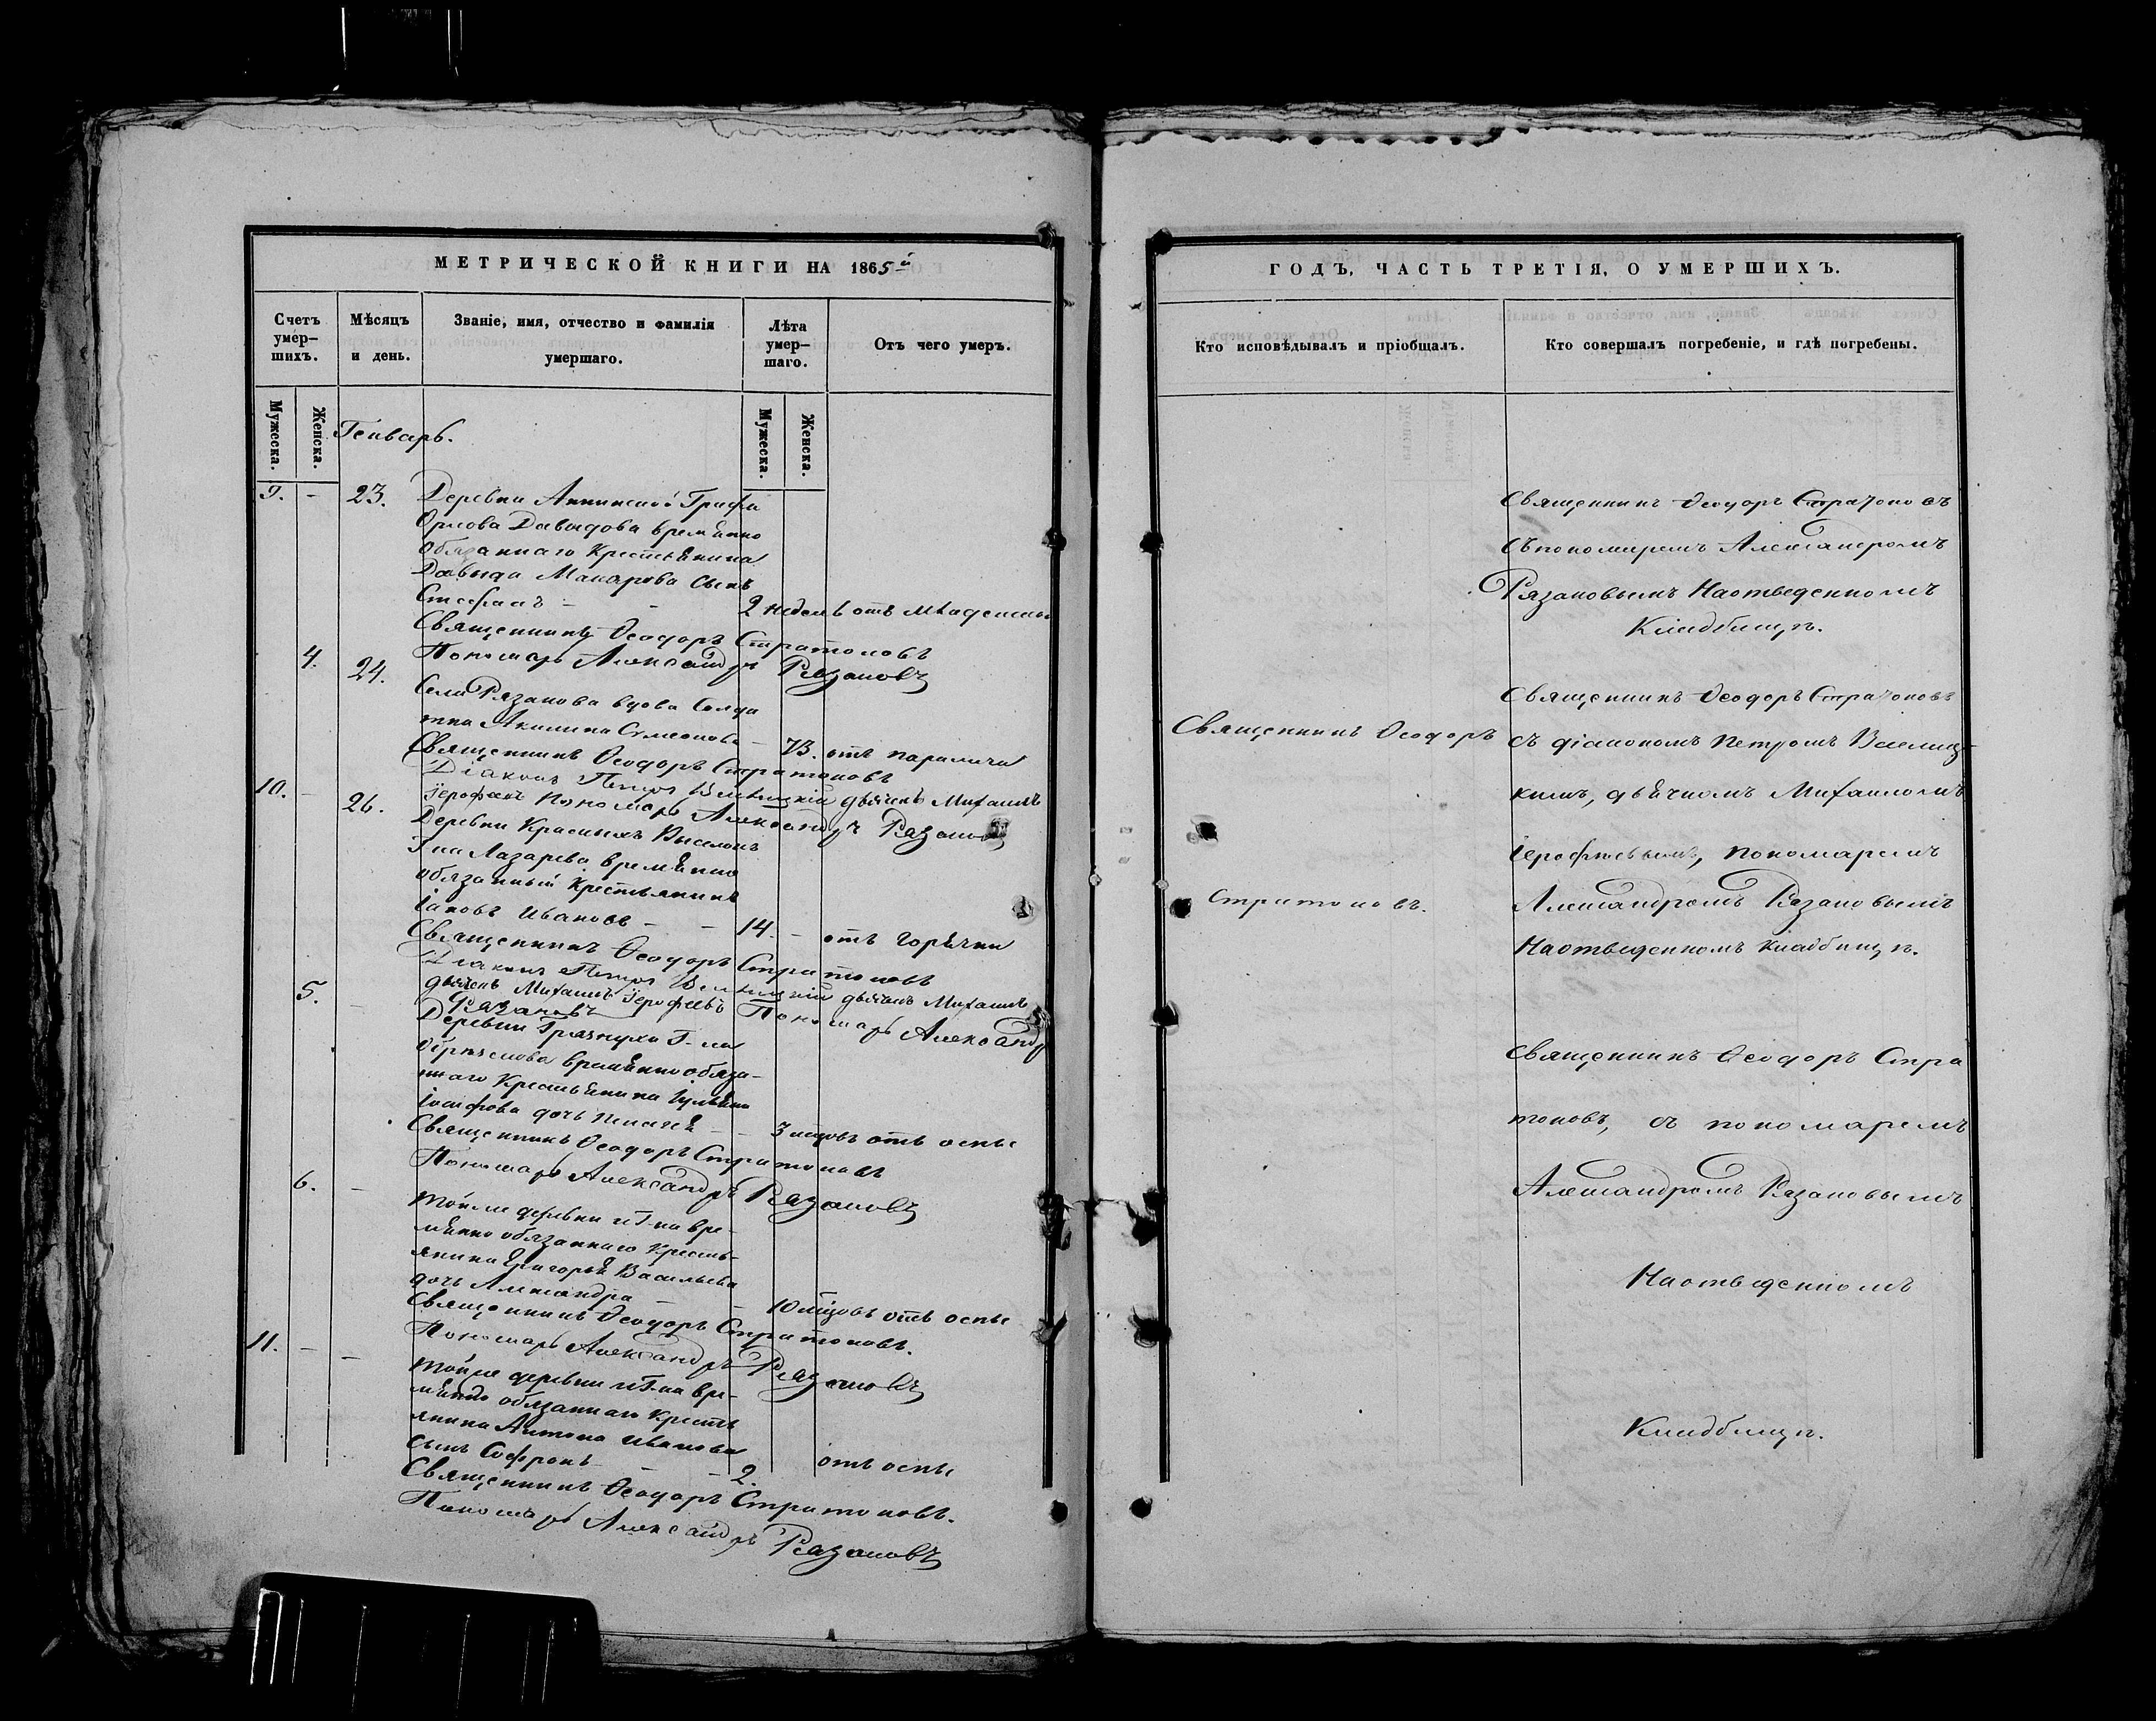 МЕТРИЧЕСКОЙ КНИГИ НА 1865й
Счетъ умер-шихъ.
Мѣсяцъ и день.
Званіе, имя, отчество и фамилія умершаго.
Лѣта умер-шаго.
Отъ чего умеръ.
Мужеска.
Женска.
Мужеска.
Женска.
Генварь.
9. - 23. Деревни Аннинской Графа
Орлова Давыдова временно
обязаннаго Крестьянина
Давыда Макарова сынъ
Стефанъ - - 2 недель отъ младенческой
Священникъ Ѳеодоръ Стратоновъ
Пономарь Александръ Рязановъ
4. 24. Села Рязанова вдова Солда
тка Акилина Симеонова - 73. отъ паралича
Священникъ Ѳеодоръ Стратоновъ
Діаконъ Петръ дьячекъ Михаилъ
Пономарь Александръ Рязановъ
10. - 26. Деревни Красныхъ Выселокъ
Г-на Лазарева временно
обязанный крестьянинъ
Іаковъ Ивановъ - - 14. - отъ горячки
Священникъ Ѳеодоръ Стратоновъ
Діаконъ Петръ дьячекъ Михаилъ
дьячекъ Михаилъ Іерофеевъ Пономарь Александръ
Рязановъ
5. - Деревни Грязнухи Г-на
временно обяза-
ннаго Крестьянина
Іосифова дочь Пелагея - - 3 мѣсяцовъ отъ оспы
Священникъ Ѳеодоръ Стратоновъ
Пономарь Александръ Рязановъ
6. - Той же деревни и Г-на вре-
менно обязаннаго Кресть-
янина Григорья Васильева
дочь Александра - - 10 мѣсяцовъ отъ оспы
Священникъ Ѳеодоръ Стратоновъ.
Пономарь Александръ Рязановъ
11. - - Той же деревни и Г-на вре-
менно обязаннаго Кресть
янина Антона Иванова
сынъ Софронъ - - 2. отъ оспы
Священникъ Ѳеодоръ Стратоновъ.
Пономарь Александръ Рязановъ
ГОДЪ, ЧАСТЬ ТРЕТІЯ, О УМЕРШИХЪ.
Кто исповѣдывалъ и пріобщалъ.
Кто совершалъ погребеніе, и гдѣ погребены.
Священникъ Ѳеодоръ Стратоновъ
съ пономаремъ Александромъ
Рязановымъ На отведенномъ
Кладбищѣ.
Священникъ Ѳеодоръ
Стратоновъ.
Священникъ Ѳеодоръ Стратоновъ
съ діакономъ Петромъ
кимъ, дьячкомъ Михаиломъ
Іерофеевымъ, пономаремъ
Александромъ Рязановымъ
На отведенномъ кладбищѣ.
Священникъ Ѳеодоръ Стра
тоновъ, съ пономаремъ
Александромъ Рязановымъ
На отведенномъ
Кладбищѣ.